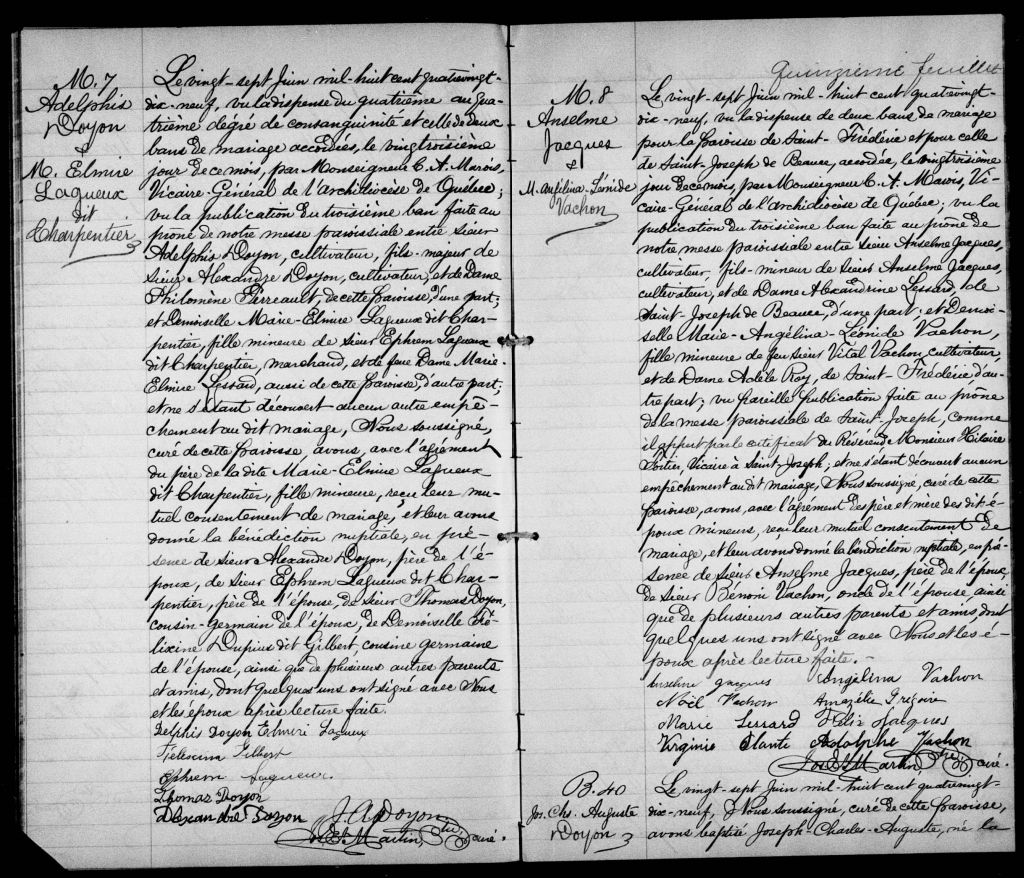 M. 7
Adelphis
Doyon
&
M. Elmire
Lagueux
dit
Charpentier
Le vingt-sept Juin mil-huit cent quatrevingt-
dix-neuf, vu la dispense du quatrième au qua-
trième dégré de consanguinité et celle de deux
bans de mariage accordées, le vingtroisième
jour de ce mois, par Monseigneur C. A. Marois,
Vicaire-Général de l'archidiocèse de Québec;
vu la publication du troisième ban faite au
prône de notre messe paroissiale entre Sieur
Adelphis Doyon, cultivateur, fils-majeur de
Sieur Alexandre Doyon, cultivateur, et de Dame
Philomène Perreault, de cette paroisse, d'une part;
et Demoiselle Marie-Elmire Lagueux dit Char-
pentier, fille mineure de Sieur Ephrem Lagueux
dit Charpentier, marchand, et de feue Dame Marie-
Elmire Lessard, aussi de cette paroisse, d'autre part;
et ne s'étant découvert aucun autre empê-
chement au dit mariage, Nous soussigné,
curé de cette paroisse, avons, avec l'agrément
du père de la dite Marie-Elmire Lagueux
dit Charpentier, fille mineure, reçu leur mu-
tuel consentement de mariage, et leur avons
donné la bénédiction nuptiale, en pré-
sence de Sieur Alexandre Doyon, père de l'é-
poux, de Sieur Ephrem Lagueux dit Char-
pentier, père de l'épouse, de Sieur Thomas Doyon,
cousin-germain de l'époux, de Demoiselle Fé-
lixine Dupuis dit Gilbert, cousine germaine
de l'épouse, ainsi que de plusieurs autres parents
et amis, dont quelques uns ont signé avec Nous
et les époux après lecture faite.
Delphis Doyon Elmire Lagueux
Gilbert
Ephrem Lagueux
Thomas Doyon
Alexandre Doyon J. A. Doyon
Jos. E. Martin, Ptre curé.
Quinzième feuillet
M. 8
Anselme
Jacques
&
M. Angélina-Léonide
Vachon
Le vingt-sept Juin mil-huit cent quatrevingt-
dix-neuf, vu la dispense de deux bans de mariage
pour la paroisse de Saint-Frédéric et pour celle
de Saint-Joseph de Beauce, accordée, le vingtroisième
jour de ce mois, par Monseigneur C. A. Marois, Vi-
caire-Général de l'archidiocèse de Québec; vu la
publication du troisième ban faite au prône de
notre messe paroissiale entre Sieur Anselme Jacques,
cultivateur, fils-mineur de Sieur Anselme Jacques,
cultivateur, et de Dame Alexandrine Lessard, de
Saint-Joseph de Beauce, d'une part; et Demoi-
selle Marie-Angélina-Léonide Vachon,
fille mineure de feu Sieur Vital Vachon, cultivateur,
et de Dame Adèle Roy, de Saint-Frédéric, d'au-
tre part; vu pareille publication faite au prône
de la messe paroissiale de Saint-Joseph, comme
il appert par le certificat du Révérend Monsieur Hilaire
Fortier, Vicaire à Saint-Joseph; et ne s'étant découvert aucun
empêchement au dit mariage, Nous soussigné, curé de cette
paroisse, avons, avec l'agrément des père et mère des dit é-
poux mineurs, reçu leur mutuel consentement de
mariage, et leur avons donné la bénédiction nuptiale, en pré-
sence de Sieur Anselme Jacques, père de l'époux,
de Sieur Bénoni Vachon, oncle de l'épouse, ainsi
que de plusieurs autres parents et amis, dont
quelques uns ont signé avec Nous et les é-
poux après lecture faite.-
Anselme Jacques Angélina Vachon
Noël Vachon Amazélie Grégoire
Marie Lessard Félix Jacques
Virginie Adolphe Vachon
Jos. E. Martin, Ptre curé.
B. 40
Jos. Chs. Auguste
Doyon
Le vingt-sept Juin mil-huit cent quatrevingt-
dix-neuf, Nous soussigné, curé de cette paroisse,
avons baptisé Joseph-Charles-Auguste, né la